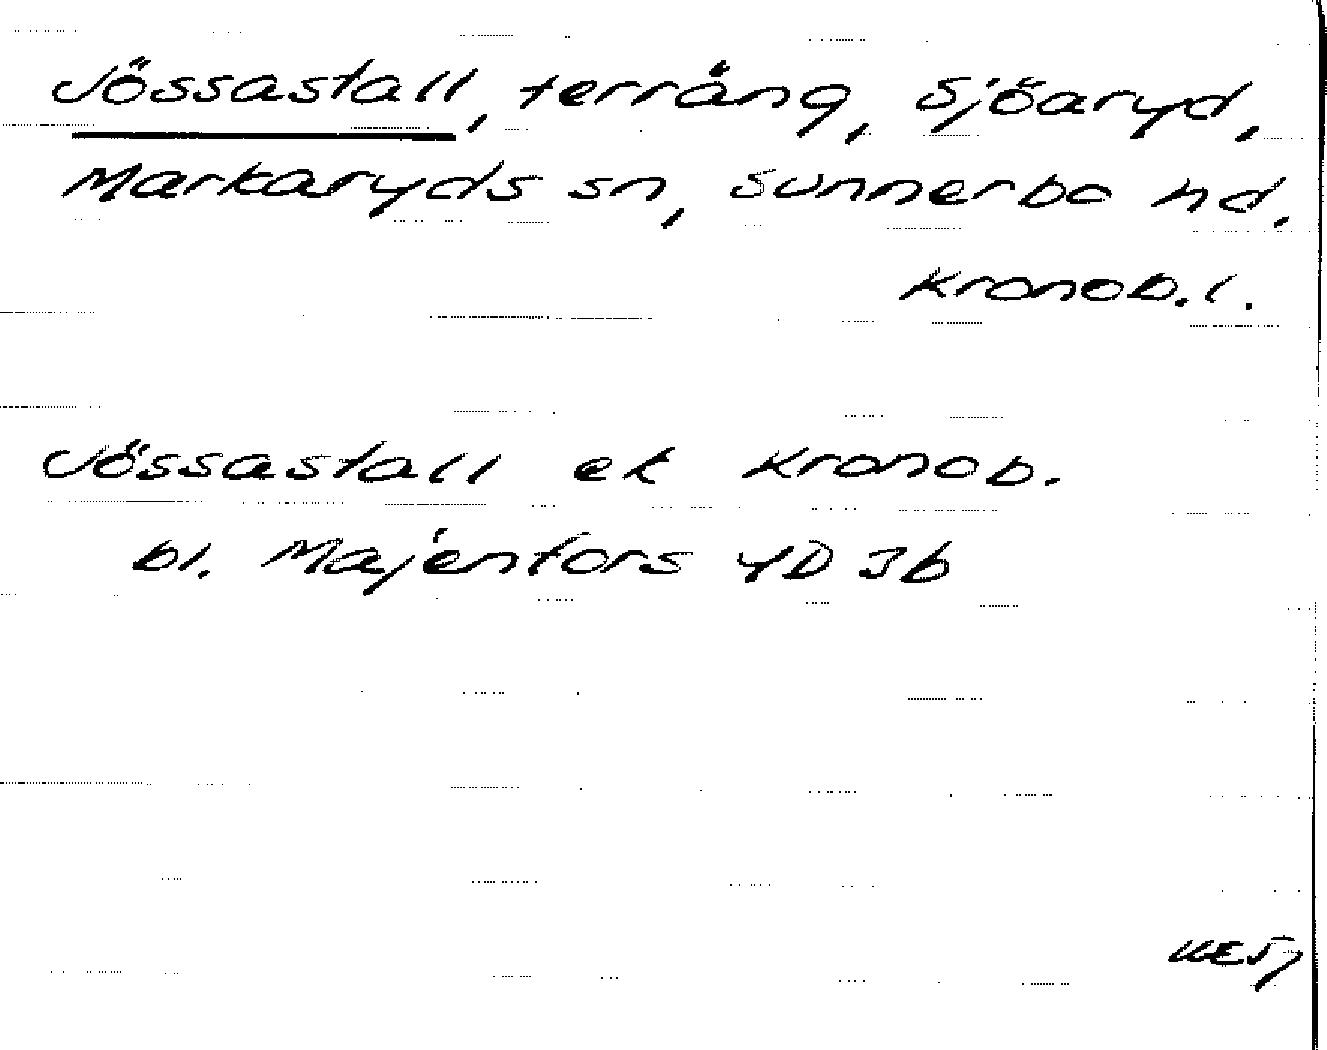 Jössastall, terräng, Sjöaryd,
Markaryds sn, Sunnerbo hd.
Kronob.l.
Jössastall ek Kronob.
bl. Majenfors 4D 3b